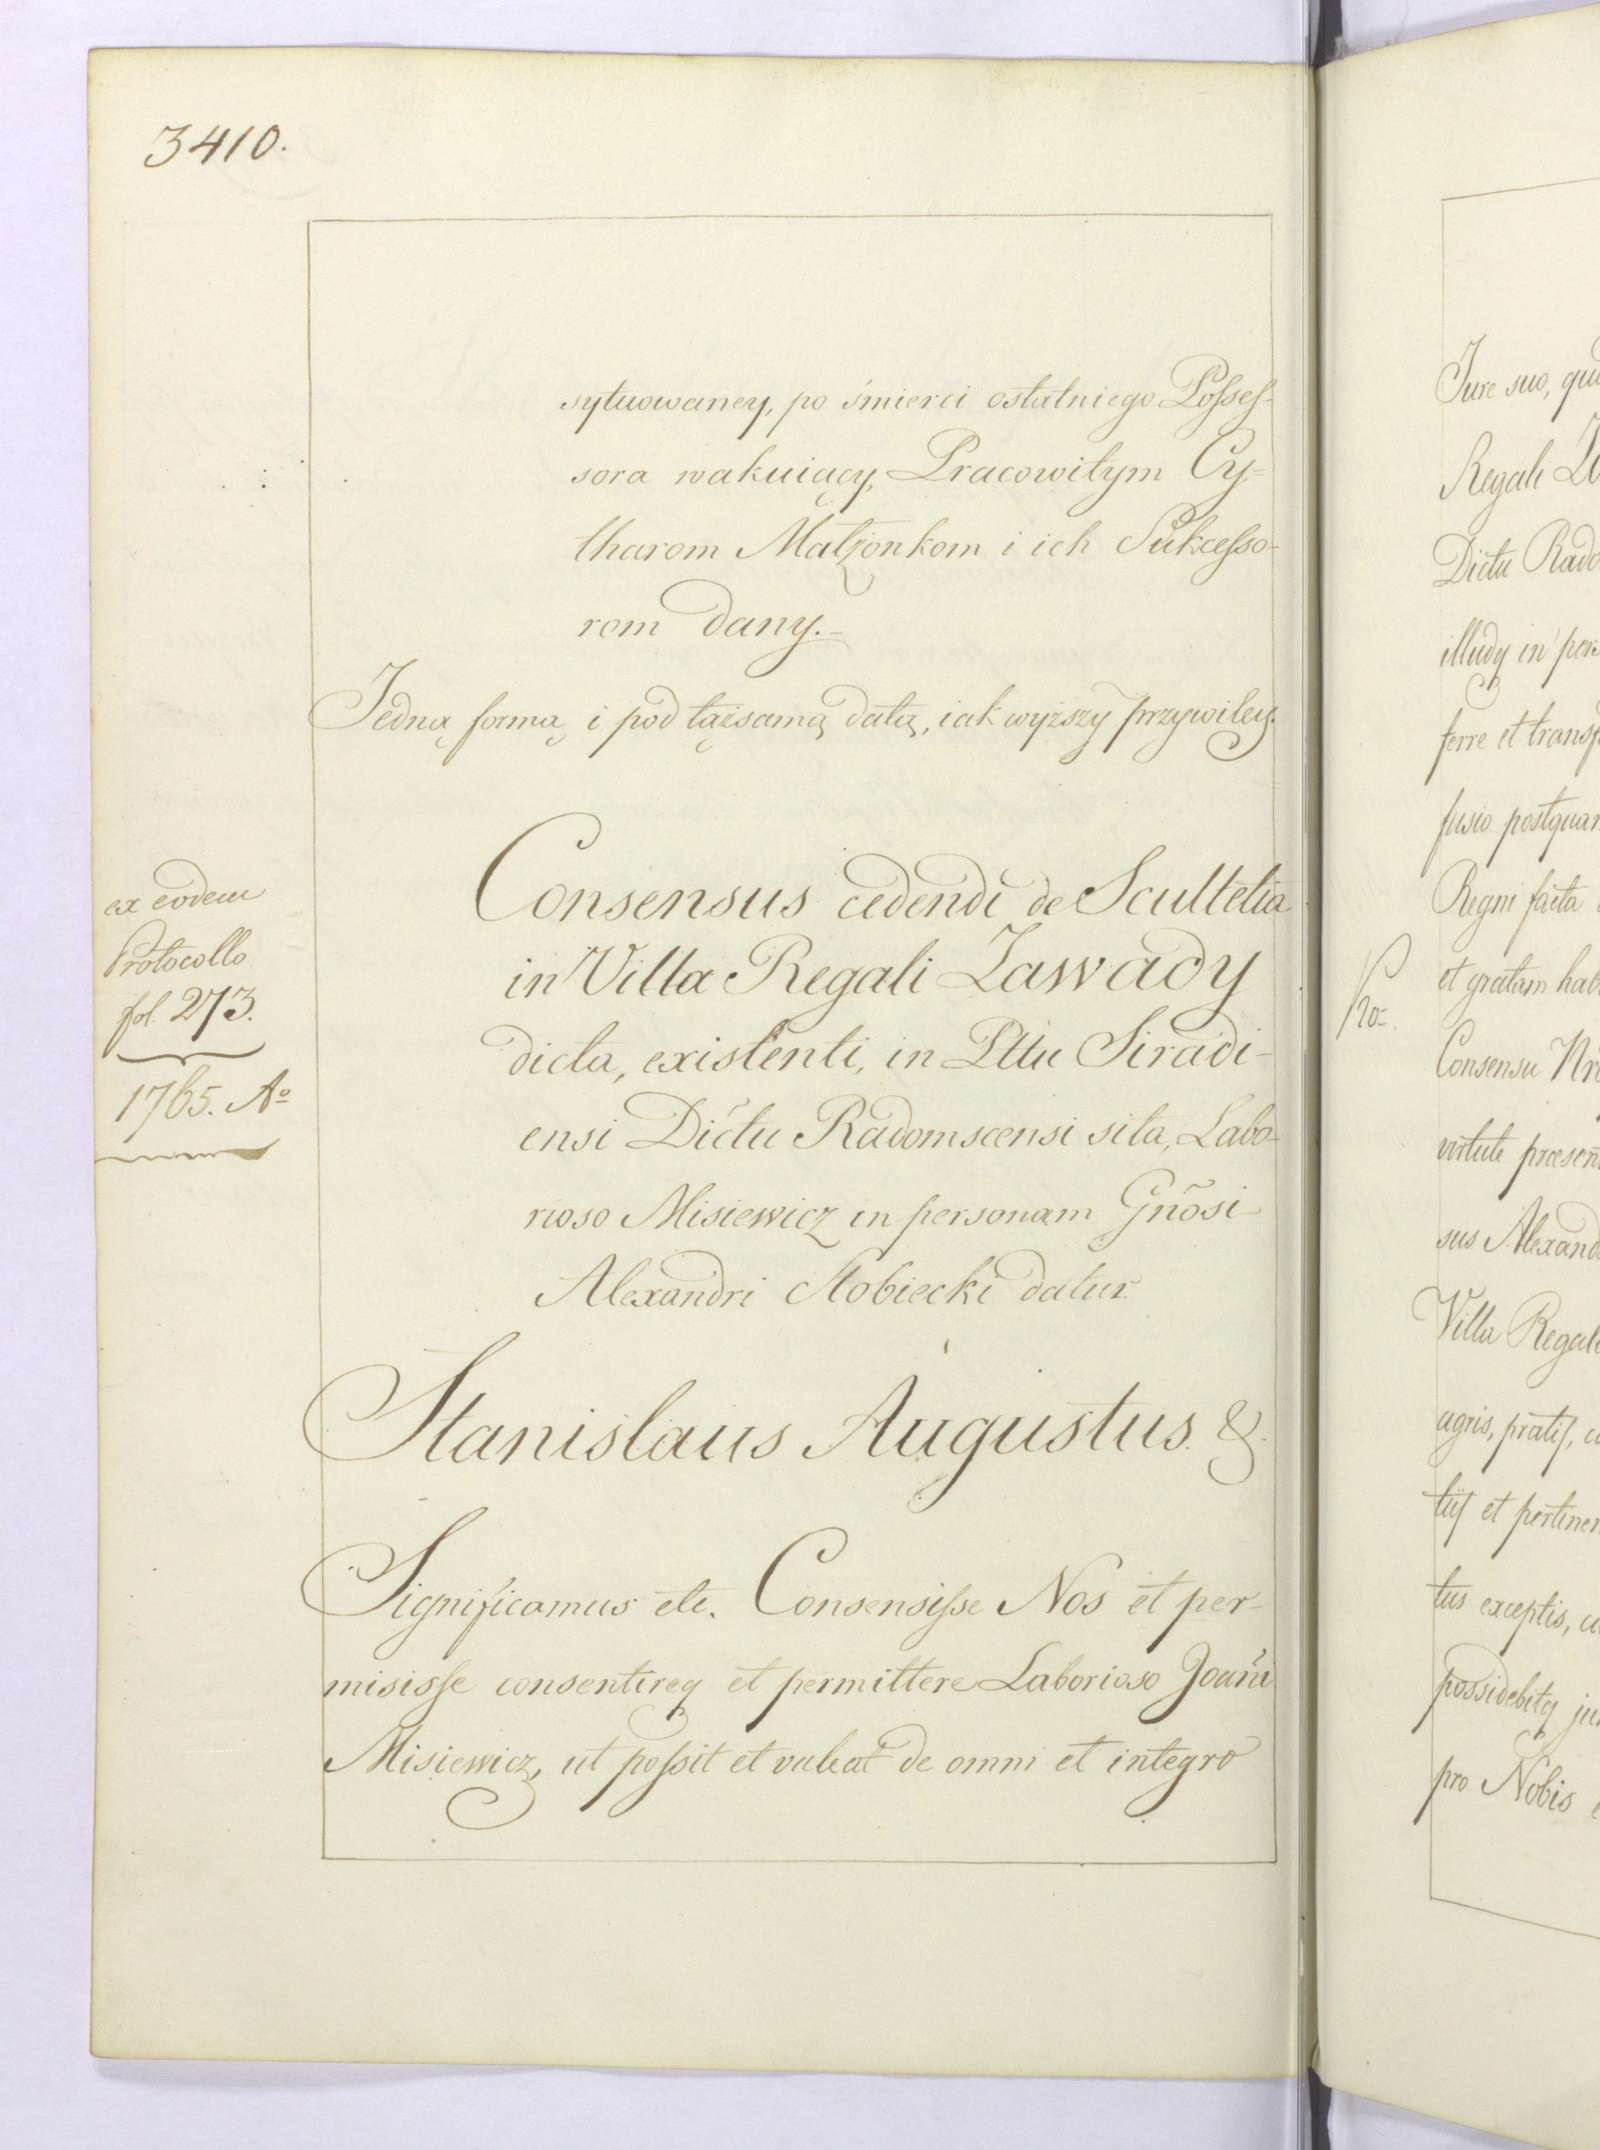 3410.
sytuowaney, po śmierci ostatniego Posses-
sora wakuiący, Pracowitym Cy=
tharom Małżonkom i ich Sukcesso-
rom dany.
Jedną formą i pod tąźsamą datą, iak wyższy przywiley.
ex eodem
Protocollo
fol. 273.
1765. Aº
Consensus cedendi de Scultetia
in Villa Regali Zawady
dicta, existenti, in Pttu Siradi-
ensi Dictu Radomscensi sita, Labo-
rioso Misiewicz in personam Gñosi
Alexandri Stobiecki datur
Stanislaus Augustus &.
Significamus etc. Consensisse Nos et per-
misisse consentireq et permittere Laborioso Joañi
Misiewicz, ut possit et valeat de omni et integro
Jure suo,
Regali
Dictu
illudq in
ferre et
fusio
Regni facta
et gratam
Consensu
virtute
sus
Villa
agris, pratis,
tijs et
tus exceptis,
possidebitq
pro Nobis